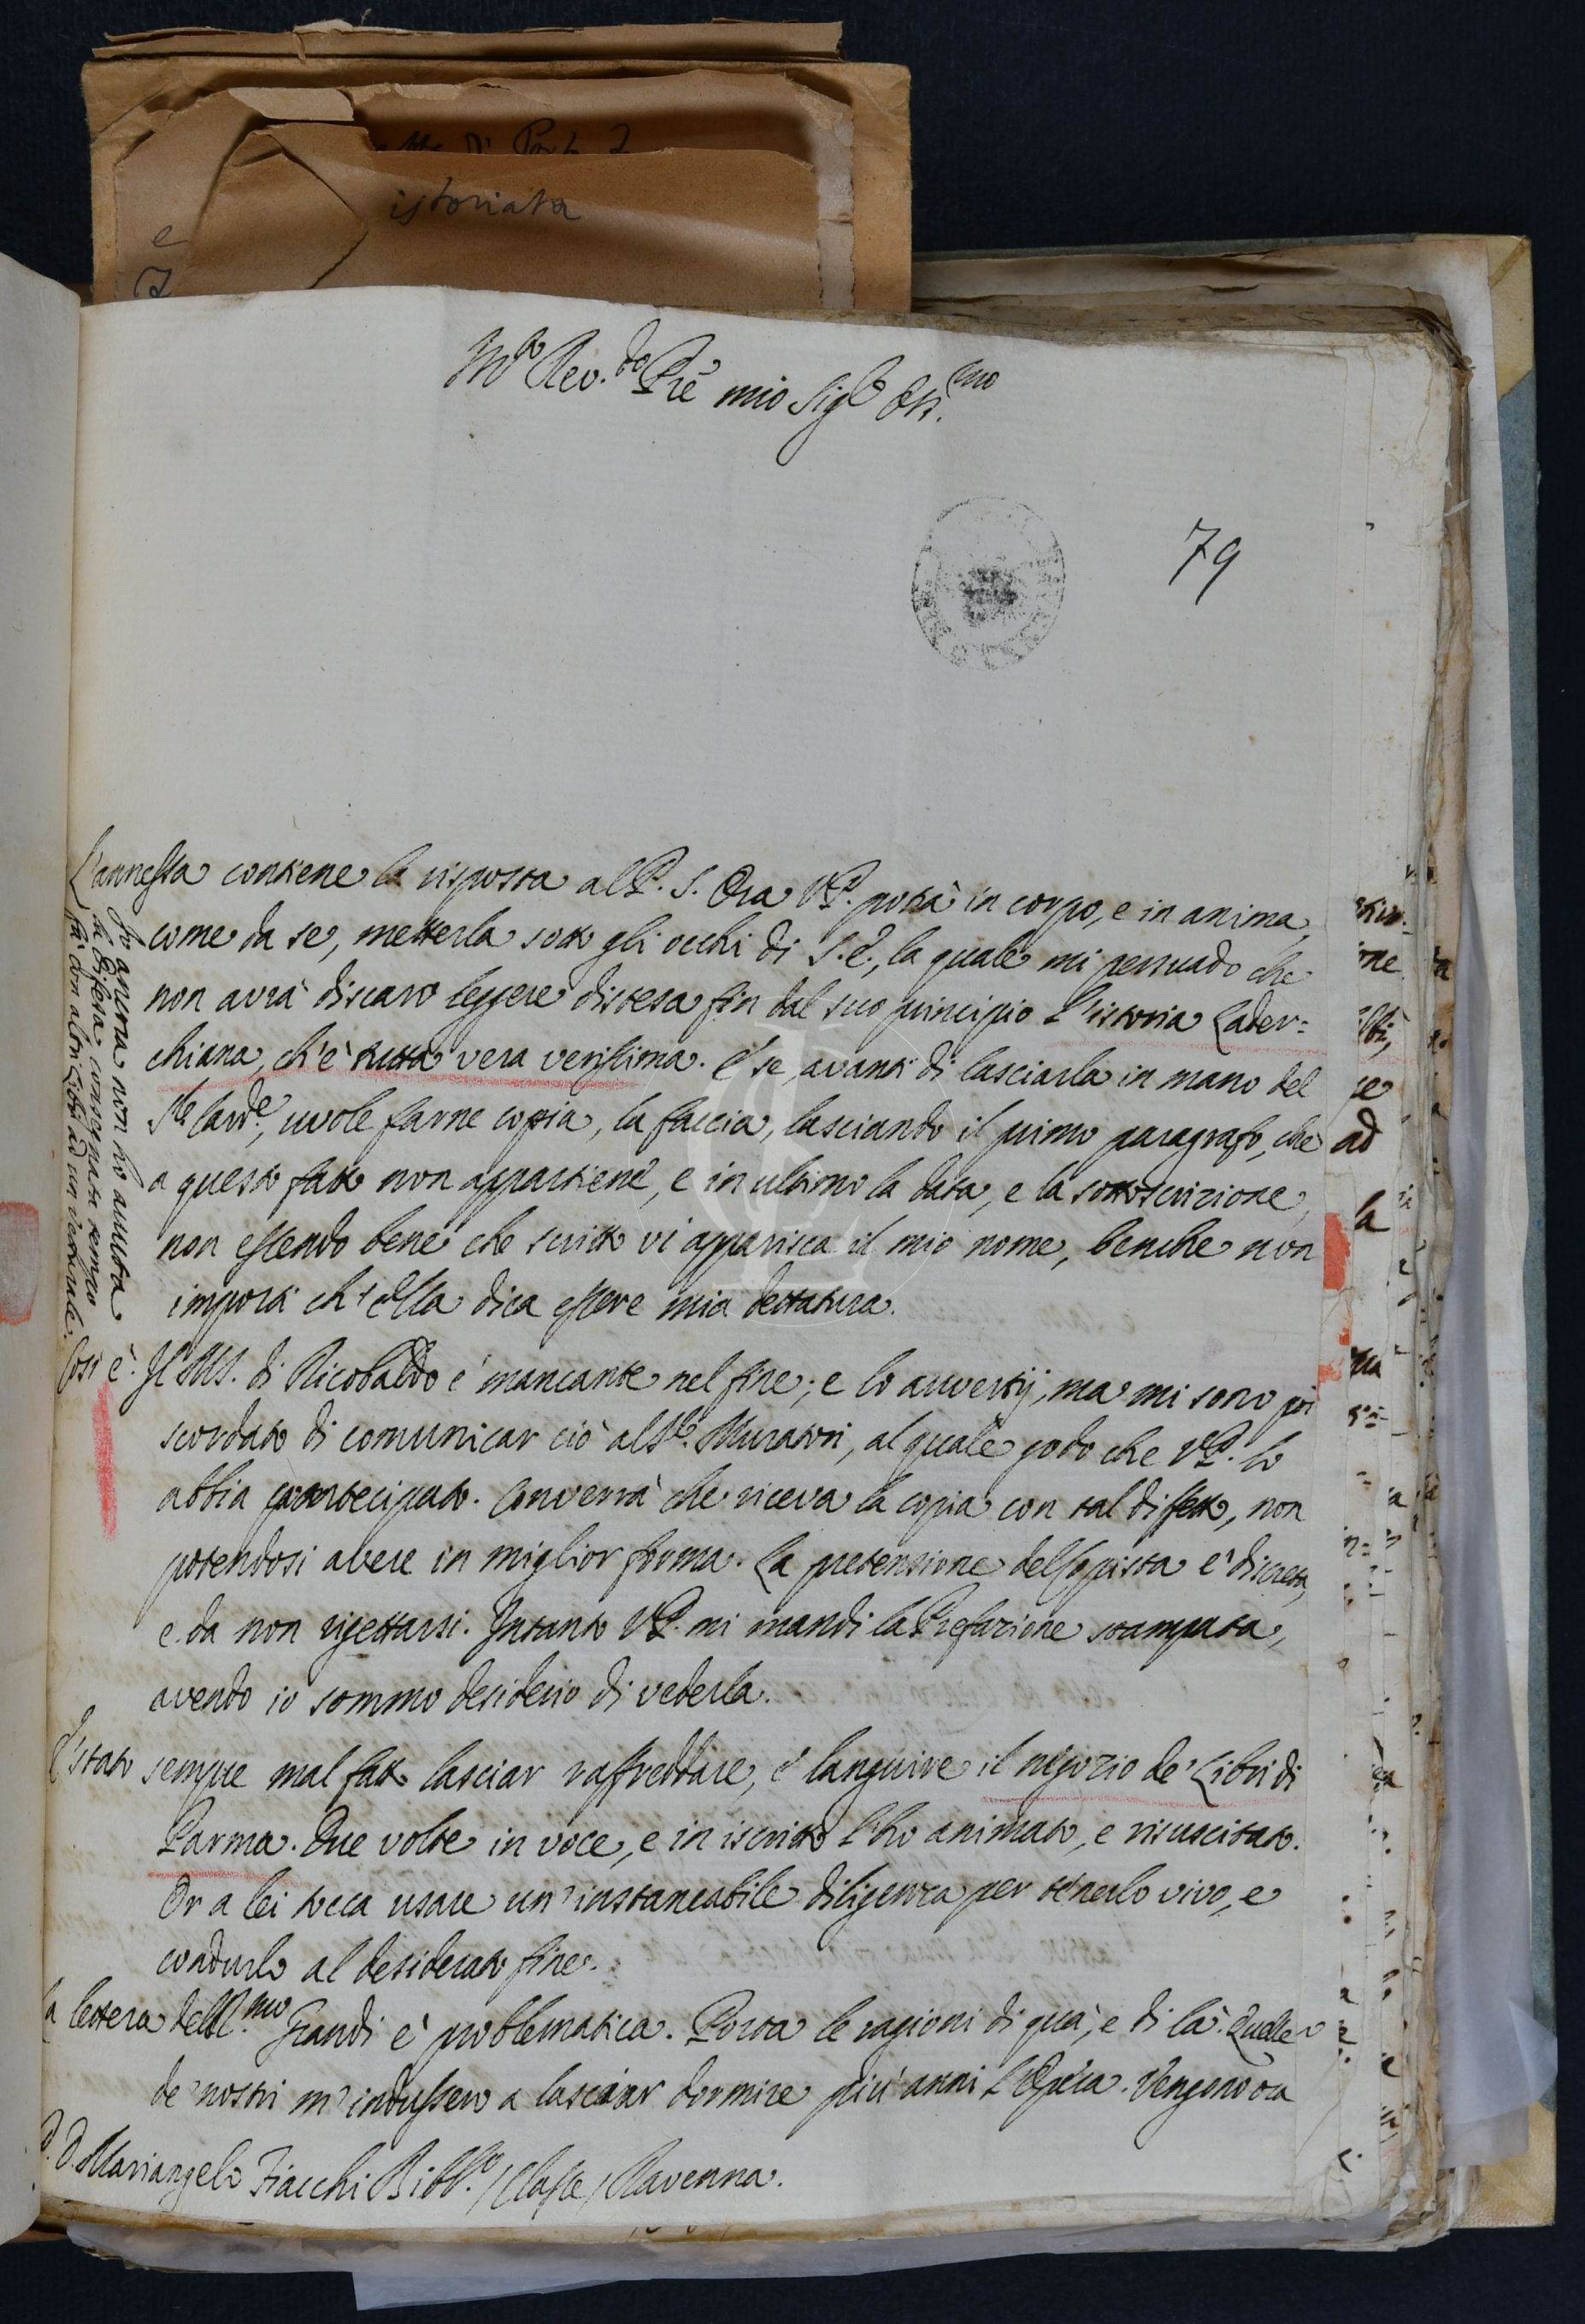 istoriata
e
M.to Rev.do Pre mio Sig.e Oss.mo
79
L'annessa contiene la risposta al P. S. Ora V.P. potrà in corpo, e in anima,
come da se, metterla sotto gli occhi di S.E., la quale mi persuado che
non avrà discaro leggere distesa fin dal suo principio l'istoria Lader=
chiana, ch'è tutta vera verissima. E se, avanti di lasciarla in mano del
S.re Card.e, vuole farne copia, la faccia, lasciando il primo paragrafo, che
a questo fatto non appartiene, e in ultimo la data, e la sottoscrizione,
non essendo bene che scritto vi apparisca il mio nome, benche non
importi ch'ella dica essere mia dettatura.
Io ancora non ho avuta
la difesa consegnata tempo
fà con altri Libri ad un vetturale.
Così è. Il MS. di Ricobaldo è mancante nel fine; e lo avvertij, ma mi sono poi
scordato di comunicar ciò al S.re Muratori, al quale godo che V.P. lo
abbia partecipato. Converrà che riceva la copia con tal difetto, non
potendosi avere in miglior forma. La pretensione del Copista è discreta,
e da non rigettarsi. Intanto V.P. mi mandi la Prefazione stampata,
avendo io sommo desiderio di vederla.
È stato sempre mal fatto lasciar raffreddare, e languire il negozio de' Libri di
Parma. Due volte in voce, e in iscritto l'ho animato, e risuscitato.
Or a lei tocca usare un'instancabile diligenza per tenerlo vivo, e
condurlo al desiderato fine.
La lettera del R.mo Grandi è problematica. Porta le ragioni di quà, e di là. Quelle
de' nostri m'indussero a lasciar dormire più anni l'Opera. Vengono ora
P. D. Mariangelo Fiacchi Bibl.o / Classe / Ravenna.